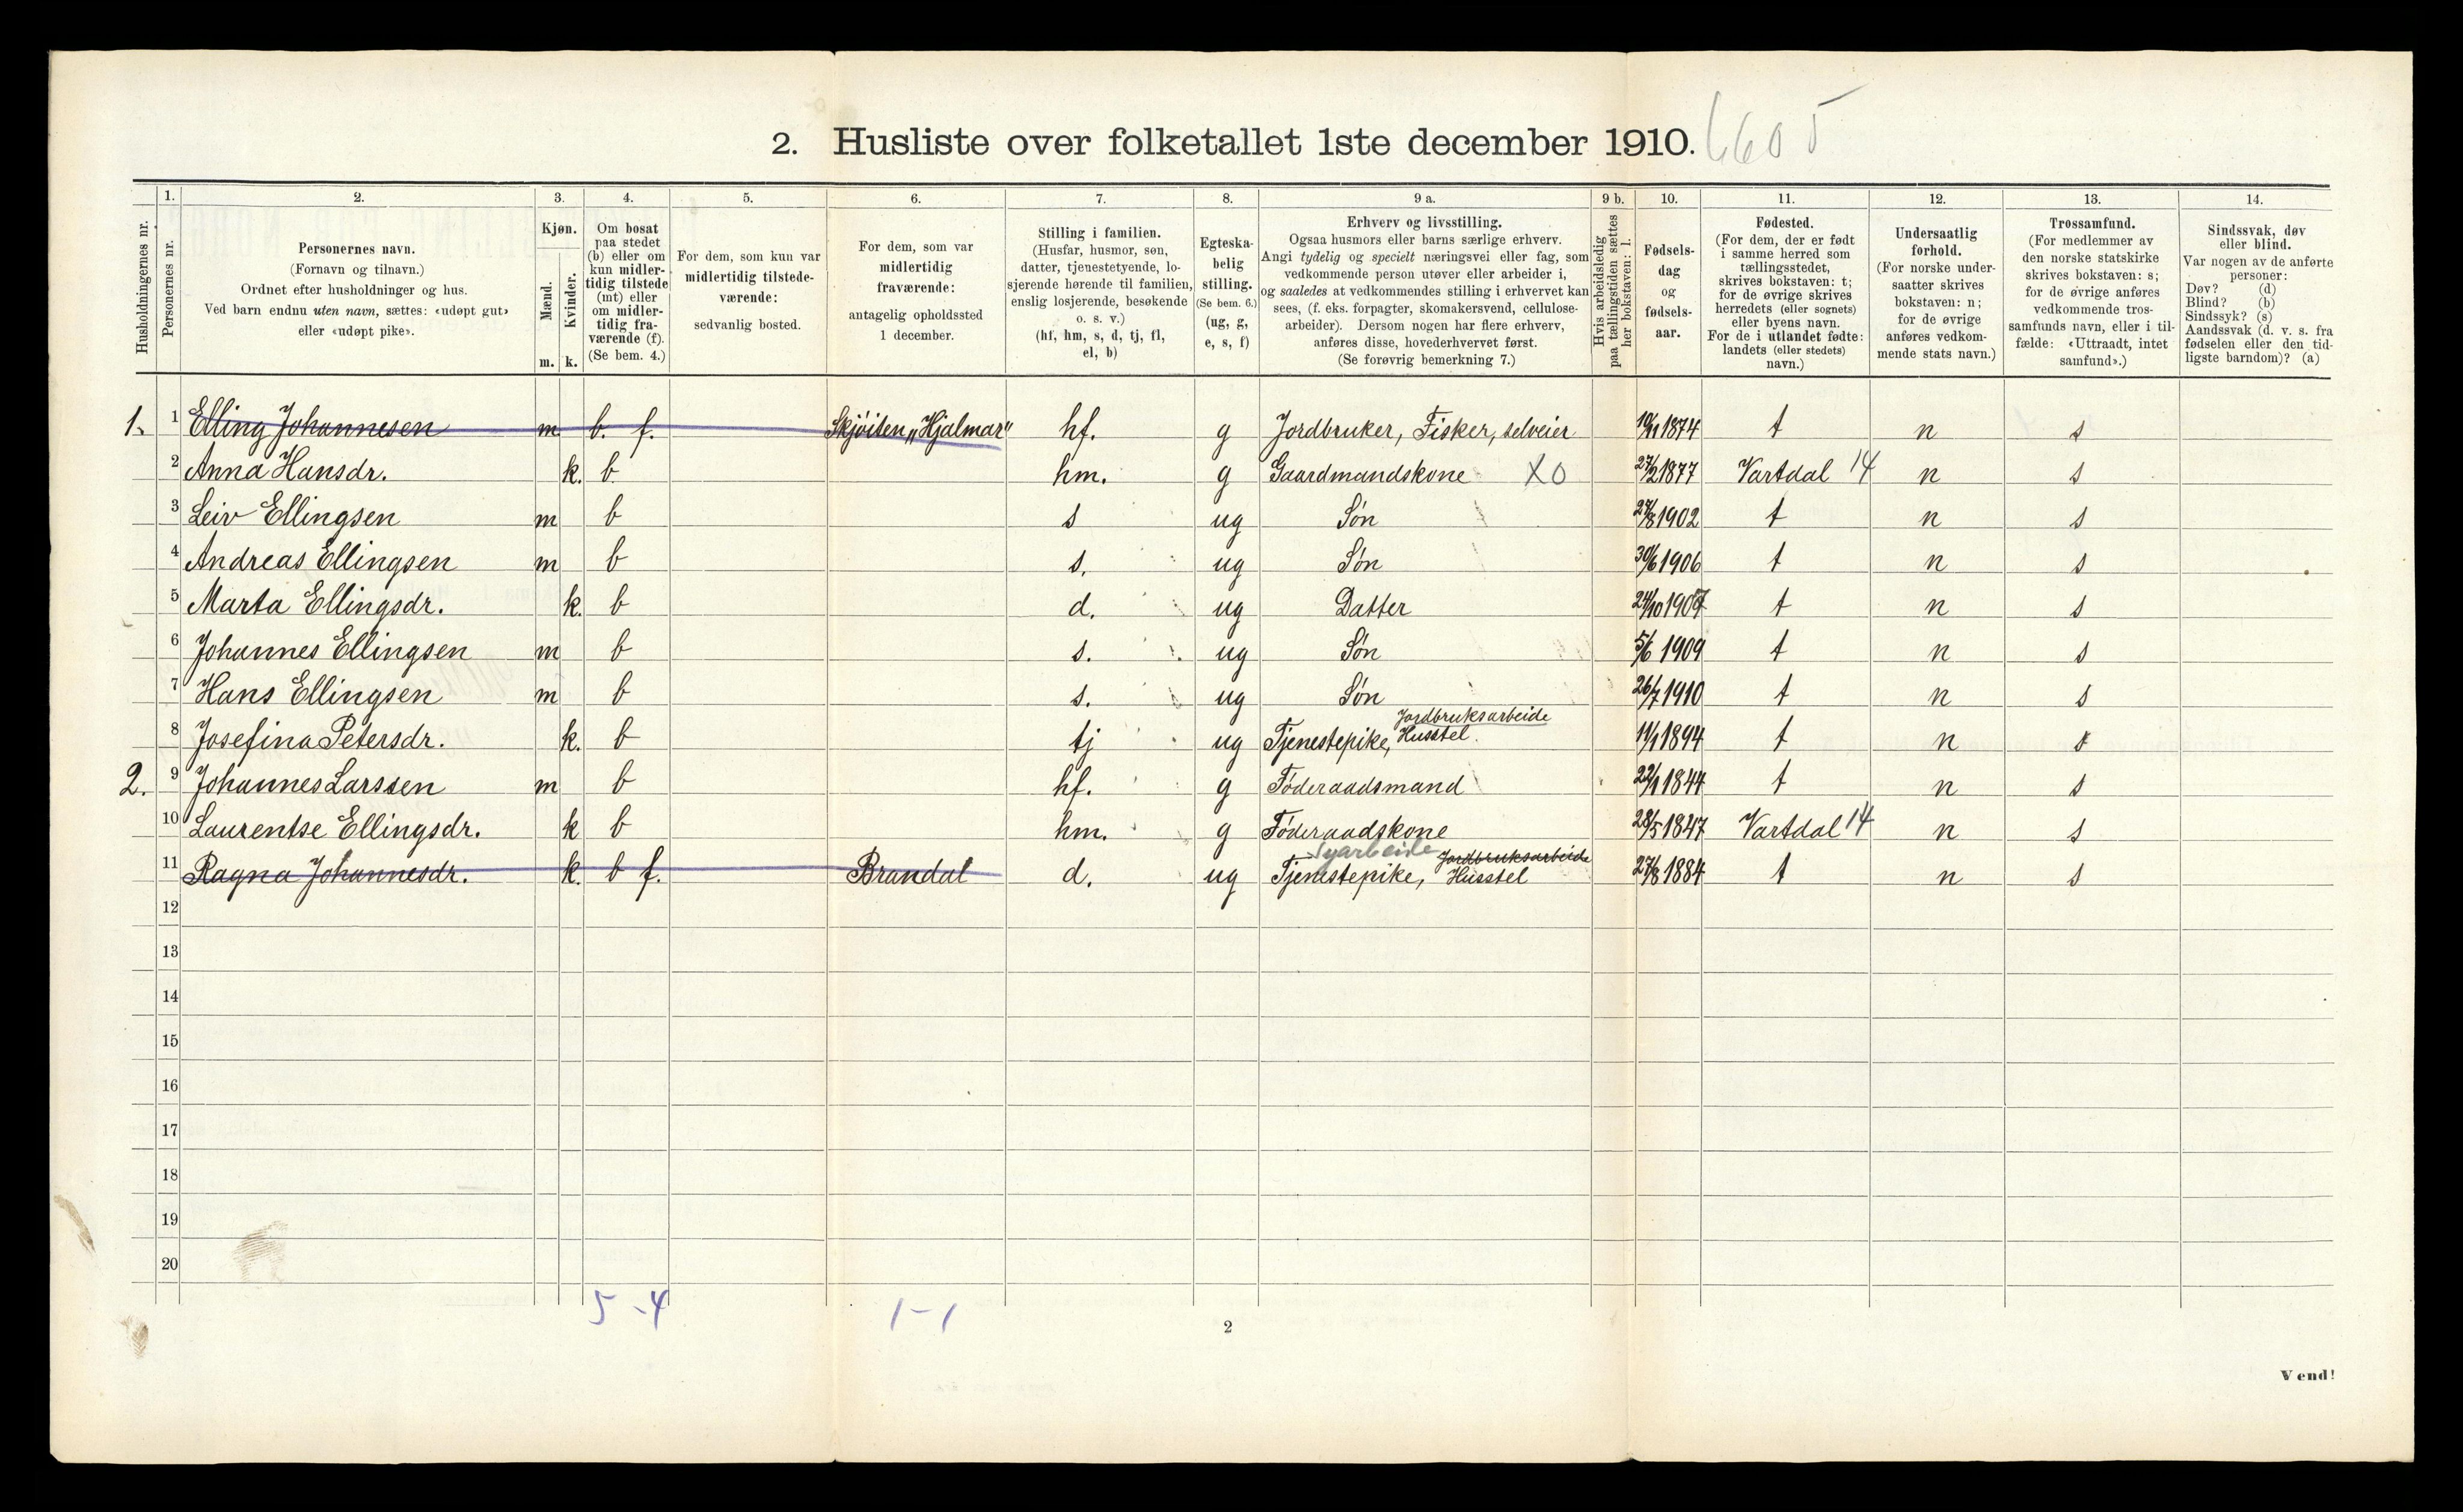 2. Husliste over folketallet 1ste december 1910. 6605
Husholdningernes nr.
1.
Personernes nr.
2.
Personernes navn.
(Fornavn og tilnavn.)
Ordnet efter husholdninger og hus.
Ved barn endnu uten navn, sættes: «udøpt gut»
eller «udøpt pike».
3.
Kjøn.
Mænd.
Kvinder.
m. k.
4.
Om bosat
paa stedet
(b) eller om
kun midler-
tidig tilstede
(mt) eller
om midler-
tidig fra-
værende (f).
(Se bem. 4.)
5.
For dem, som kun var
midlertidig tilstede-
værende:
sedvanlig bosted.
6.
For dem, som var
midlertidig
fraværende:
antagelig opholdssted
1 december.
7.
Stilling i familien.
(Husfar, husmor, søn,
datter, tjenestetyende, lo-
sjerende hørende til familien,
enslig losjerende, besøkende
o. s. v.)
(hf, hm, s, d, tj, fl,
el, b)
8.
Egteska-
belig
stilling.
(Se bem. 6.)
(ug, g,
e, s, f)
9 a.
Erhverv og livsstilling.
Ogsaa husmors eller barns særlige erhverv.
Angi tydelig og specielt næringsvei eller fag, som
vedkommende person utøver eller arbeider i,
og saaledes at vedkommendes stilling i erhvervet kan
sees, (f. eks. forpagter, skomakersvend, cellulose-
arbeider). Dersom nogen har flere erhverv,
anføres disse, hovederhvervet først.
(Se forøvrig bemerkning 7.)
9 b.
Hvis arbeidsledig
paa tællingstiden sættes
her bokstaven: l.
10.
Fødsels-
dag
og
fødsels-
aar.
11.
Fødested.
(For dem, der er født
i samme herred som
tællingsstedet,
skrives bokstaven: t;
for de øvrige skrives
herredets (eller sognets)
eller byens navn.
For de i utlandet fødte:
landets (eller stedets)
navn.)
12.
Undersaatlig
forhold.
(For norske under-
saatter skrives
bokstaven: n;
for de øvrige
anføres vedkom-
mende stats navn.)
13.
Trossamfund.
(For medlemmer av
den norske statskirke
skrives bokstaven: s;
for de øvrige anføres
vedkommende tros-
samfunds navn, eller i til-
fælde: «Uttraadt, intet
samfund».)
14.
Sindssvak, døv
eller blind.
Var nogen av de anførte
personer:
Døv? (d)
Blind? (b)
Sindssyk? (s)
Aandssvak (d. v. s. fra
fødselen eller den tid-
ligste barndom)? (a)
1. 1 Elling Johannesen m b. f. Skjøiten "Hjalmar" hf. g Jordbruker, Fisker, selveier 1874 t n s
2 Anna Hansdr. k. b hm. g Gaardmandskone XO 27/2 1877 Vartdal 14 n s
3 Leiv Ellingsen m b s ug Søn 1902 t n s
4 Andreas Ellingsen m b s. ug Søn 30/6 1906 t n s
5 Marta Ellingsdr. k. b d. ug Datter 24/10 1907 t n s
6 Johannes Ellingsen m b s. ug Søn 5/6 1909 t n s
7 Hans Ellingsen m b s. ug Søn 26/7 1910 t n s
Jordbruksarbeide
8 Josefina Petersdr. k. b tj ug Tjenestepike, Husstel. 11/1 1894 t n s
2. 9 Johannes Larssen m b hf. g Føderaadsmand 22/1 1844 t n s
10 Laurentse Ellingsdr. k b hm. g Føderaadskone 28/5 1847 Vartdal 14 n s
Syarbeide Jordbruksarbeide
11 Ragna Johannesdr. k. b f. Brandal d. ug Tjenestepike, Husstel 27/8 1884 t n s
12
13
14
15
16
17
18
19
20
5 - 4 1 - 1
2
Vend!